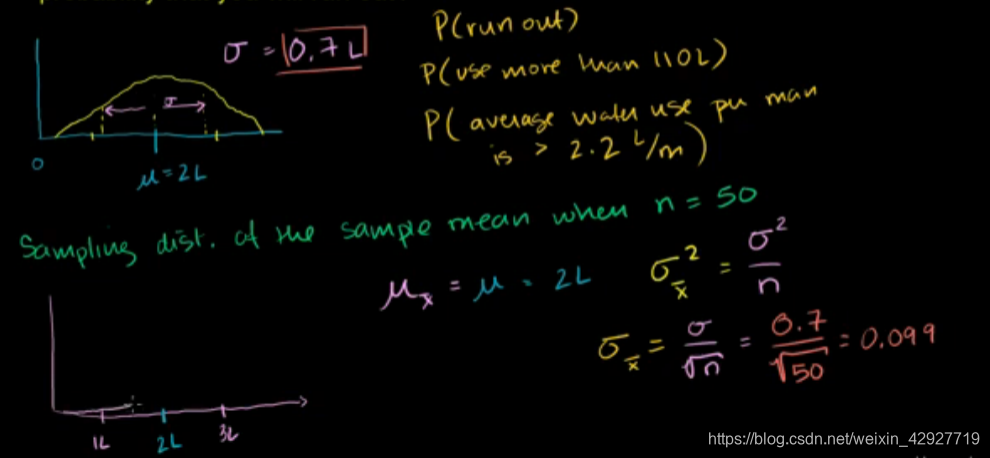 σ = 0.7 L
P(run out)
P(use more than 110L)
P(average water use per man
is > 2.2 L/m)
σ
0
μ = 2L
Sampling dist. of the sample mean when n = 50
μx̄ = μ = 2L
σx̄² = σ²/n
σx̄ = σ/√n = 0.7/√50 = 0.099
1L 2L 3L
https://blog.csdn.net/weixin_42927719